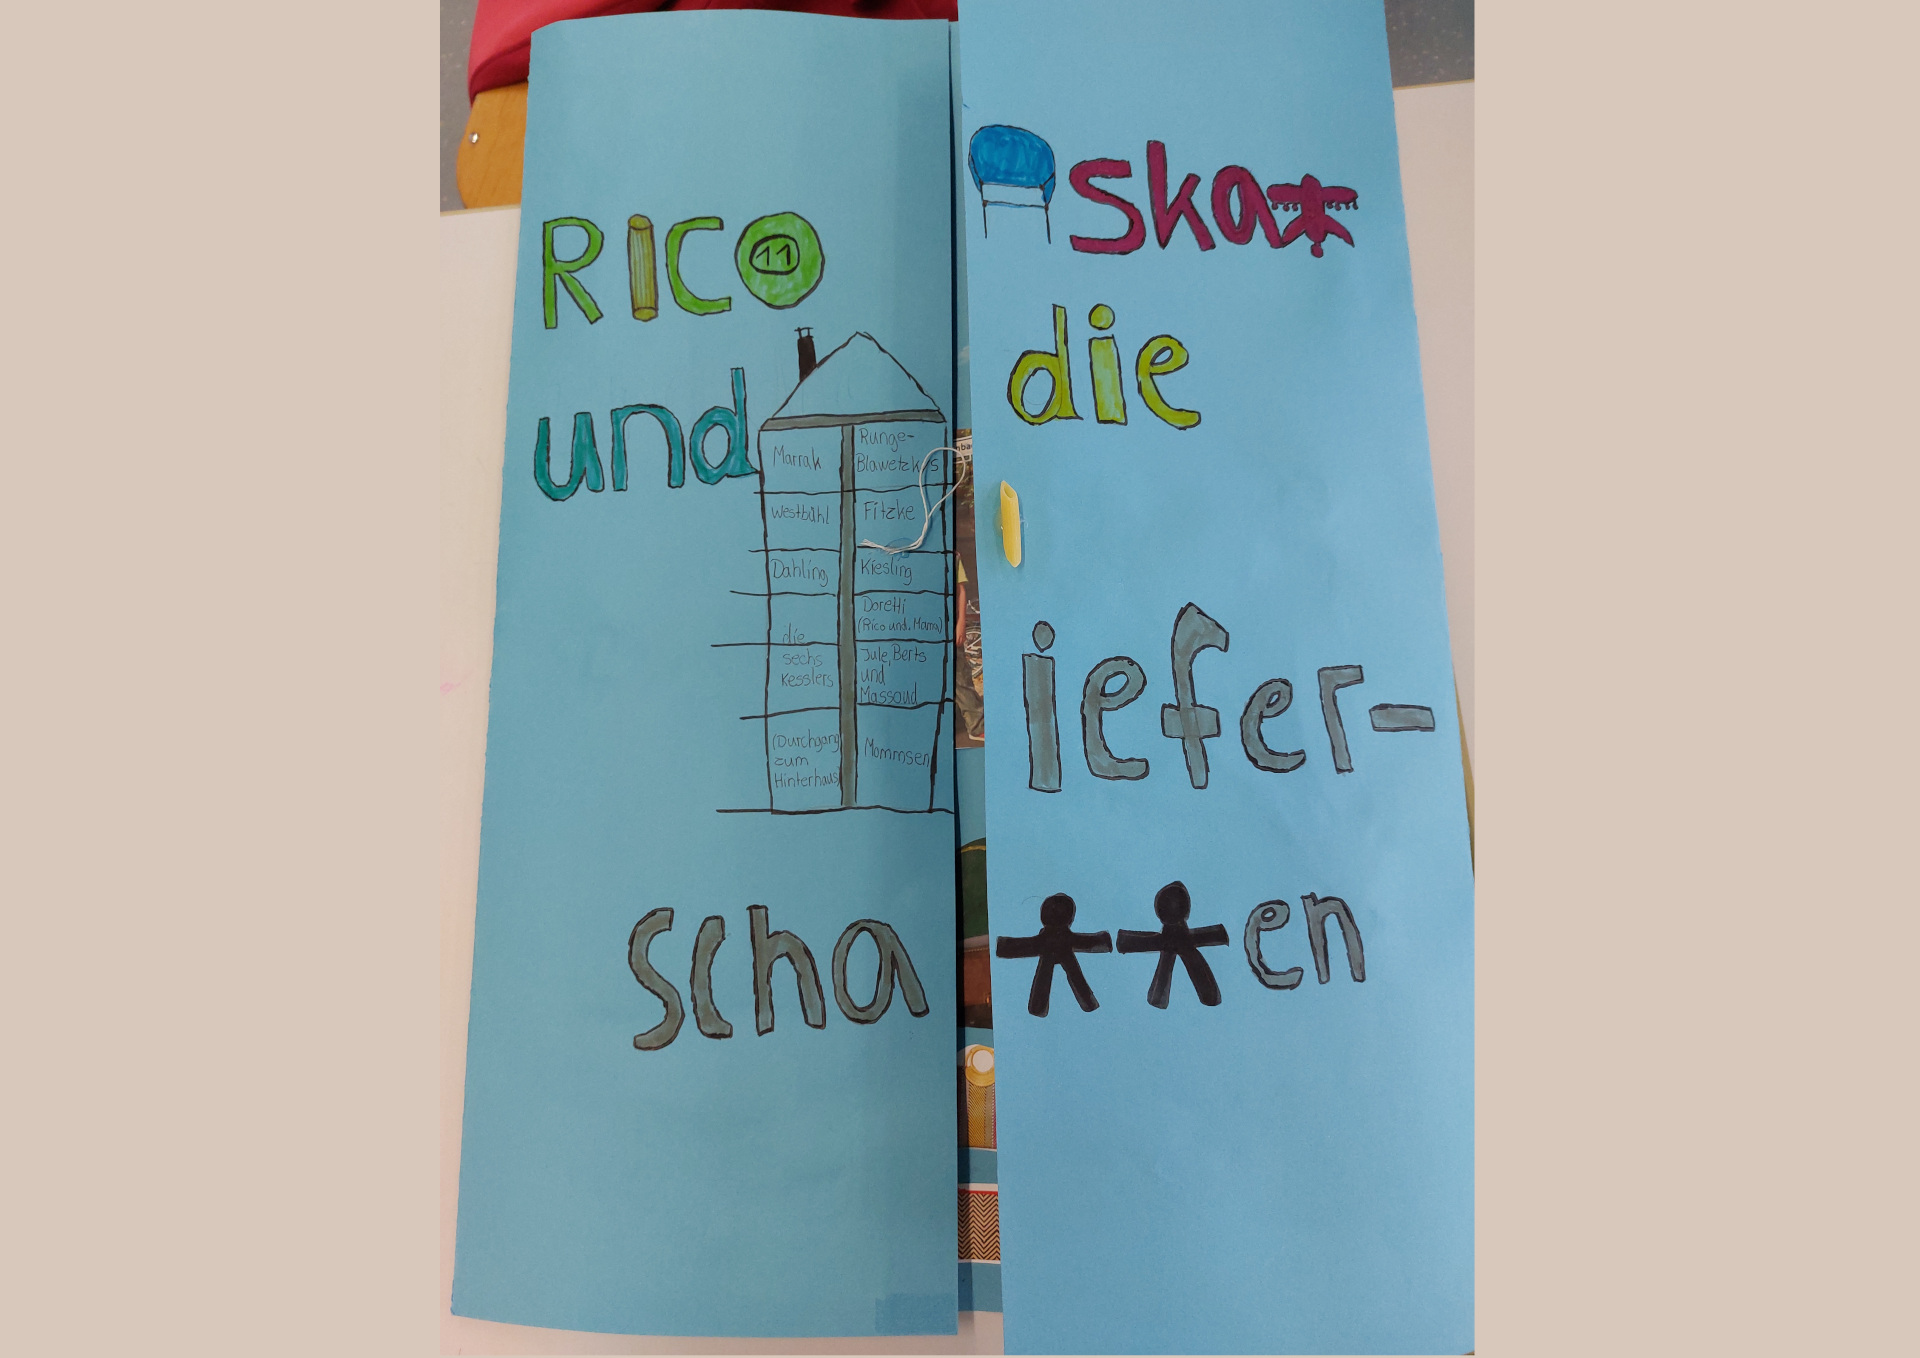 RICO
11
ska
und
die
Marrak
Runge-
Blawetzkys
Westbühl
Fitzke
Dahling
Kiesling
Doretti
(Rico und Mama)
die
sechs
Kesslers
Jule, Berts
und
Massoud
(Durchgang
zum
Hinterhaus)
Mommsen
iefer-
scha
en